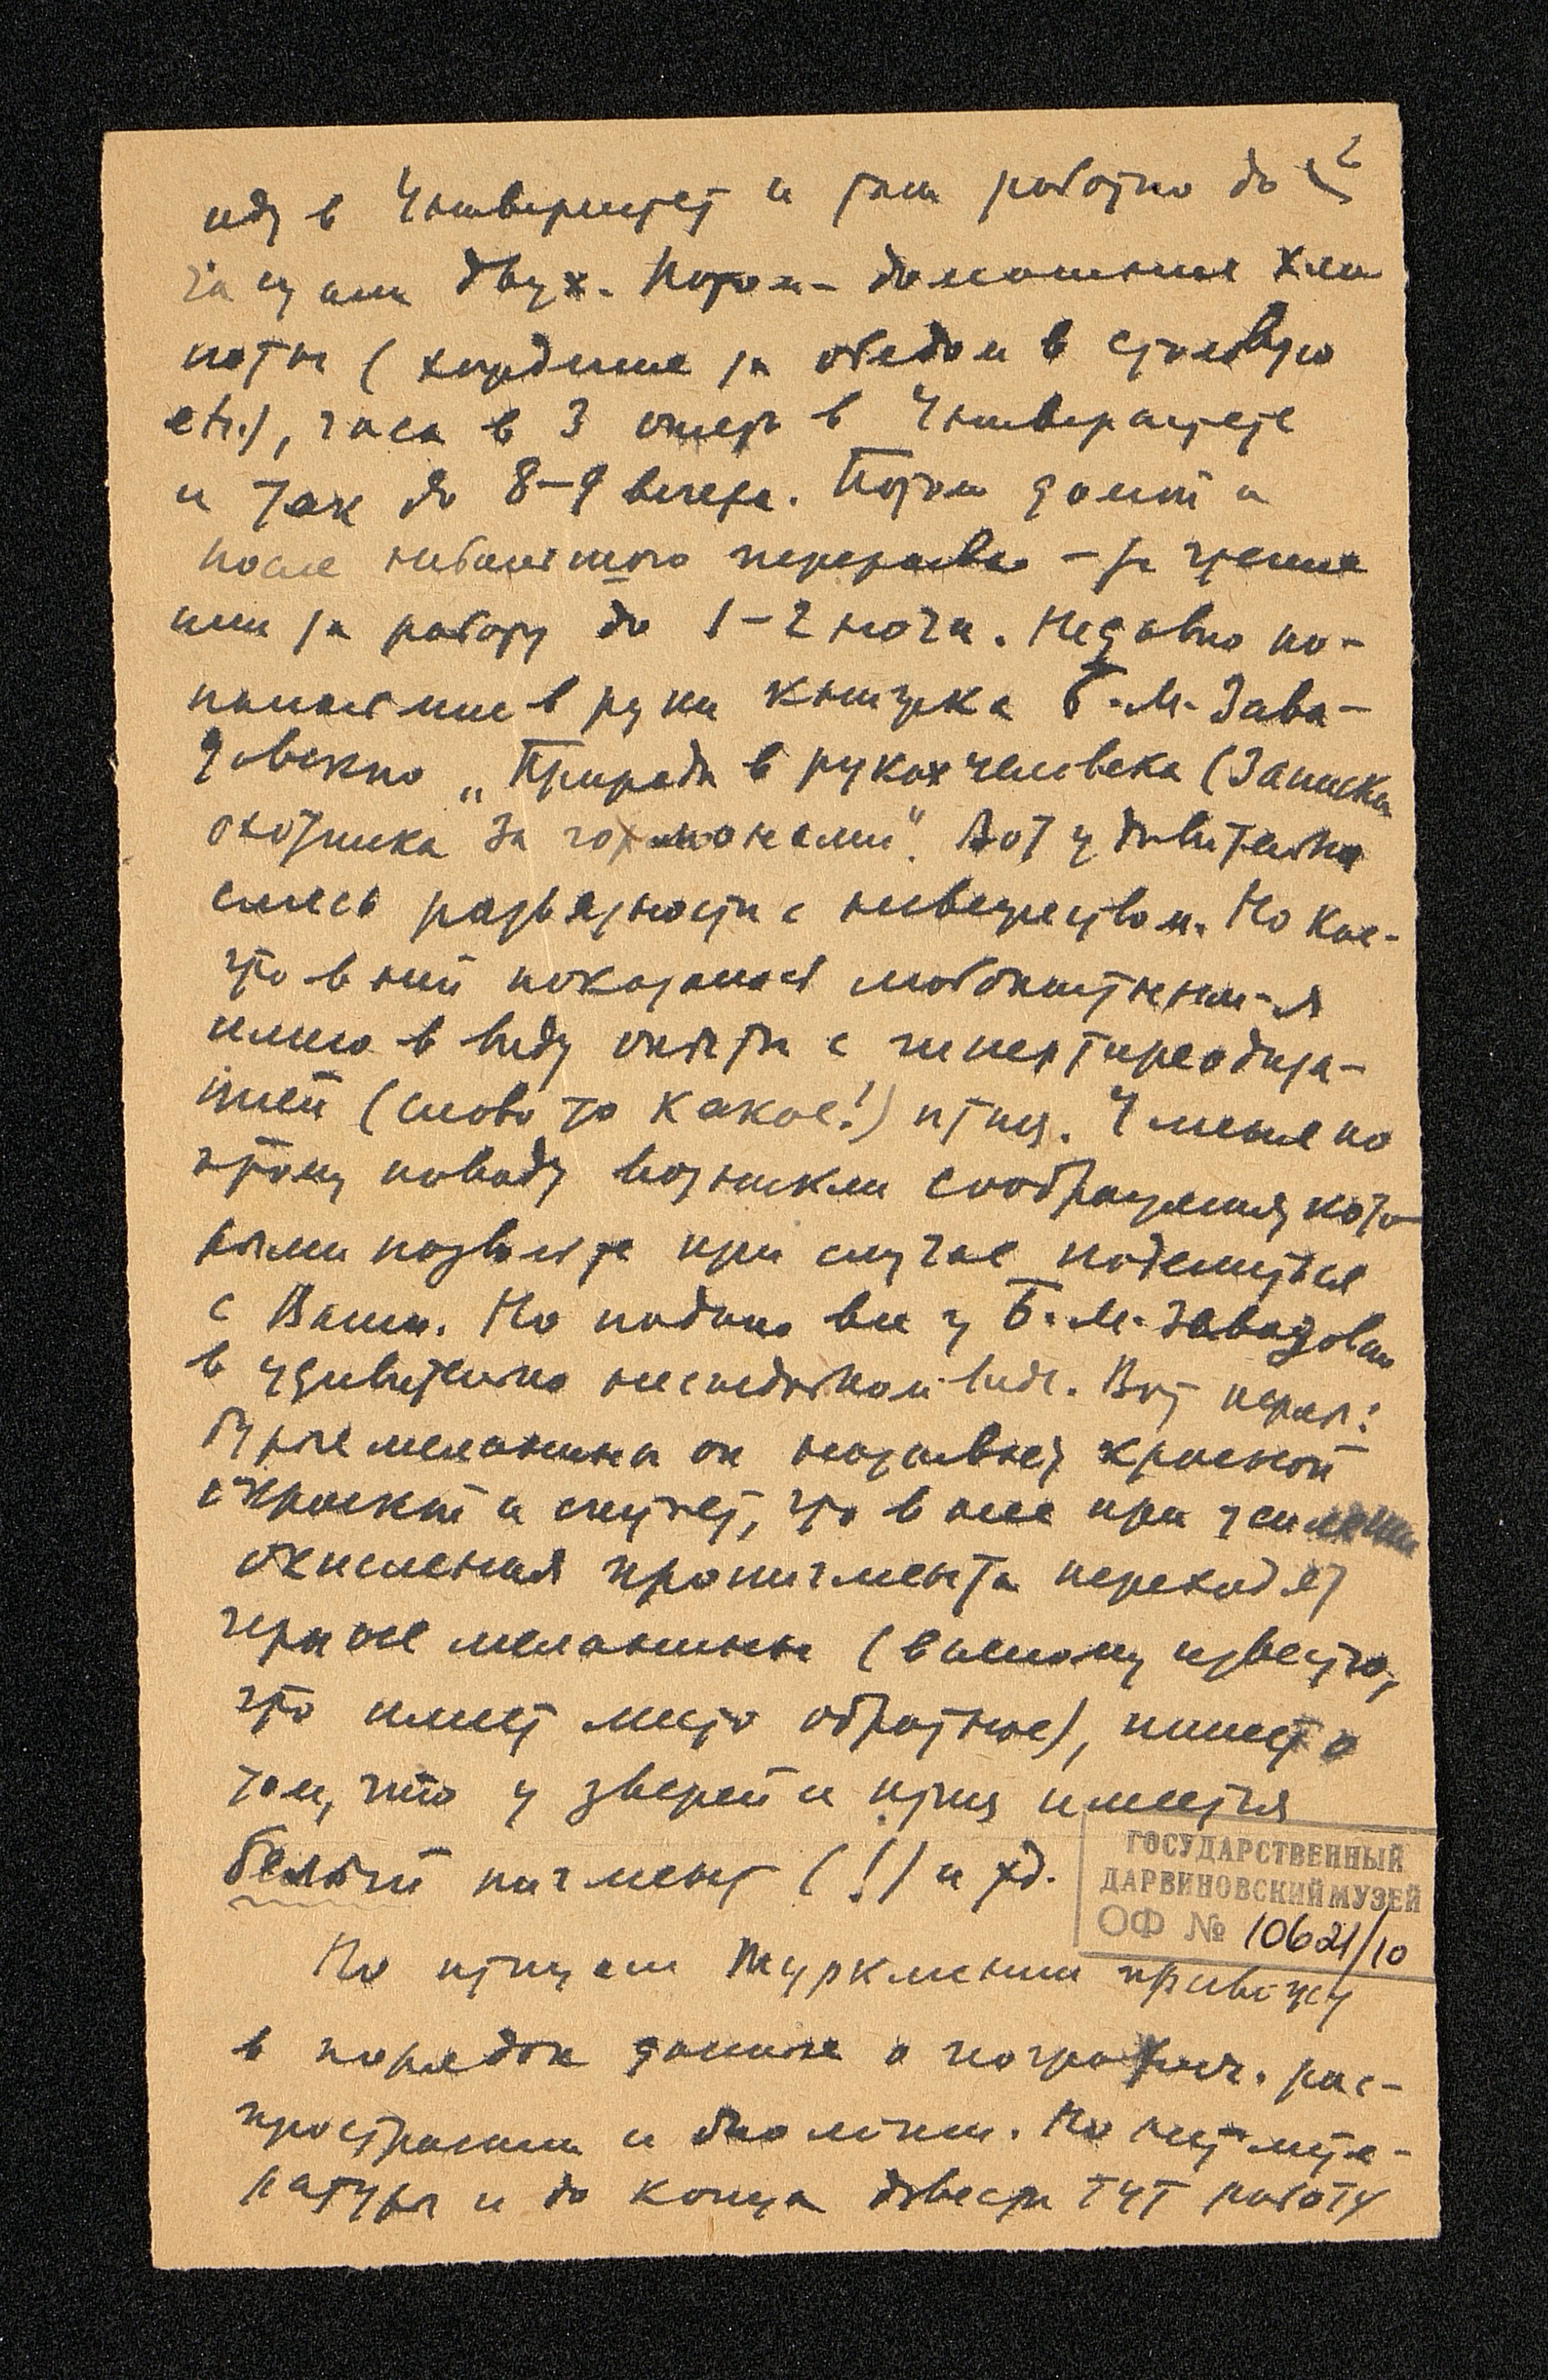 2
иду в Университет и там работаю до
часу или двух. Потом - домашние хло
поты (хождение за обедом в столовую
etc.), часа в 3 опять в Университете
и так до 8-9 вечера. Потом домой и
после небольшого перерыва - за чтение
или за работу до 1-2 ночи. Недавно по-
палась мне в руки книжка Б. М. Зава-
довского „Природа в руках человека (Записки
охотника за гормонами". Вот удивительная
смесь развязности с невежеством. Но кое-
что в ней показалось любопытным - я
имею в виду опыты с гипертиреодиза-
цией (слово то какое!) птиц. У меня по
этому поводу возникли соображения, кото-
рыми позвольте при случае поделиться
с Вами. Но подано все у Б. М. Завадовск
в удивительно несъедобном виде. Вот перл:
бурые меланины он называет красной
окраской и считает, что в нее при усилении
окисления пропигмента переходят
черные меланины (всякому известно,
что имеет место обратное), пишет о
том, что у зверей и птиц имеется
белый пигмент (!) и т.д.
По птицам Туркмении привожу
в порядок данные о географич. рас-
пространении и биологии. Но нет лите-
ратуры и до конца довести тут работу
ГОСУДАРСТВЕННЫЙ
ДАРВИНОВСКИЙ МУЗЕЙ
ОФ № 10621/10